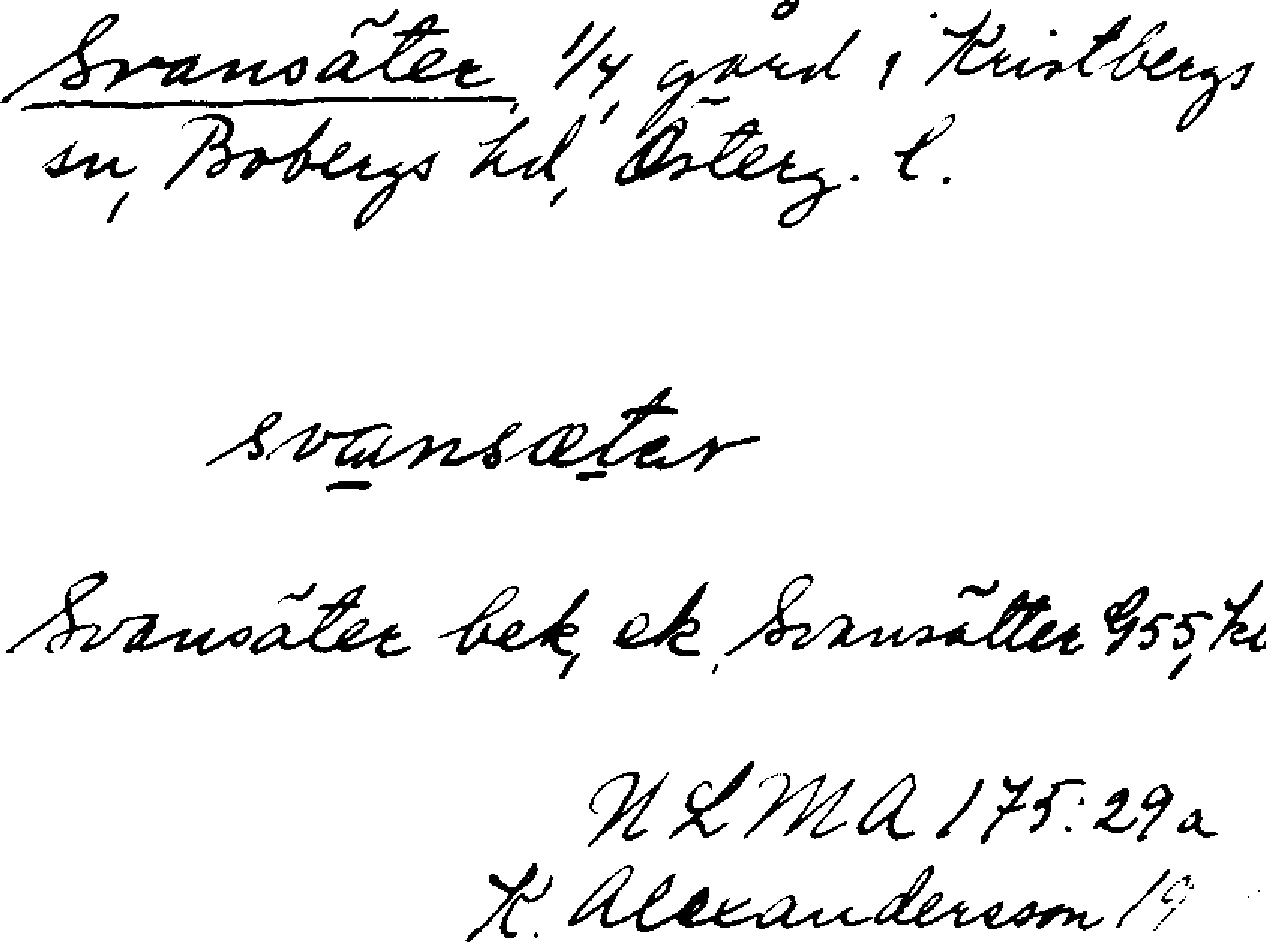 Svansäter, 1/4 gård i Kristbergs
sn, Bobergs hd, Österg. l.
svansætar
Svansäter bek, ek, Svansätter G55,
N L M A 175:29a
K. Alexandersson 19